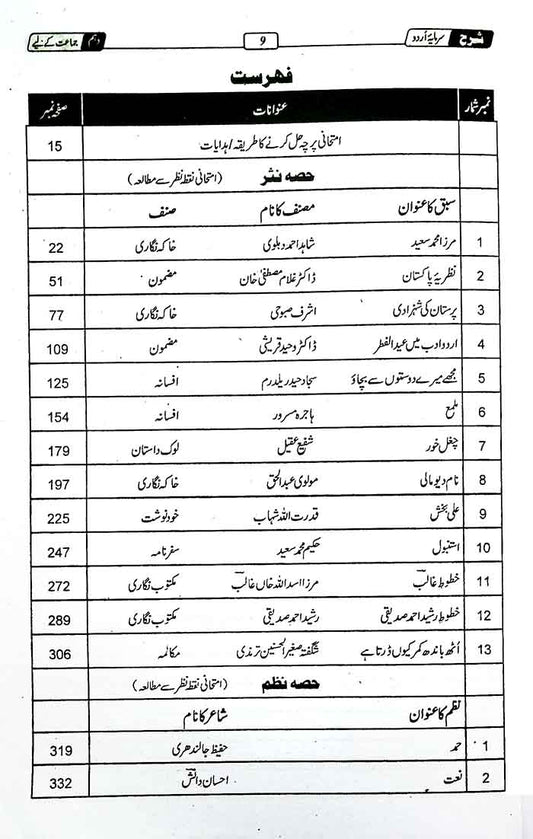 شرح سرمایۂ اُردو 9 دہم جماعت کے لیے
فہرست
نمبر شمار عنوانات صفحہ نمبر
امتحانی پرچہ حل کرنے کا طریقہ/ہدایات 15
حصہ نثر (امتحانی نقطہ نظر سے مطالعہ)
سبق کا عنوان مصنف کا نام صنف
1 مرزا محمد سعید شاہد احمد دہلوی خاکہ نگاری 22
2 نظریۂ پاکستان ڈاکٹر غلام مصطفیٰ خان مضمون 51
3 پرستان کی شہزادی اشرف صبوحی خاکہ نگاری 77
4 اردو ادب میں عید الفطر ڈاکٹر وحید قریشی مضمون 109
5 مجھے میرے دوستوں سے بچاؤ سجاد حیدر یلدرم افسانہ 125
6 ملمع ہاجرہ مسرور افسانہ 154
7 چغل خور شفیع عقیل لوک داستان 179
8 نام دیو مالی مولوی عبد الحق خاکہ نگاری 197
9 علی بخش قدرت اللہ شہاب خود نوشت 225
10 استنبول حکیم محمد سعید سفرنامہ 247
11 خطوطِ غالبؔ مرزا اسد اللہ خاں غالبؔ مکتوب نگاری 272
12 خطوطِ رشید احمد صدیقی رشید احمد صدیقی مکتوب نگاری 289
13 اُٹھ باندھ کمر کیوں ڈرتا ہے شگفتہ صغیر الحسنین ترمذی مکالمہ 306
حصہ نظم (امتحانی نقطہ نظر سے مطالعہ)
نظم کا عنوان شاعر کا نام
1 حمد حفیظ جالندھری 319
2 نعت احسان دانشؔ 332